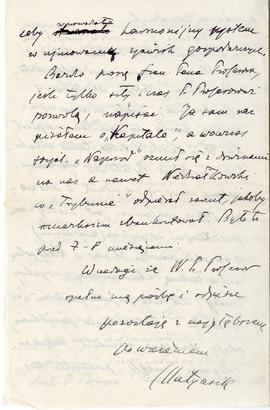 żeby wprowadzała harmonijny system
w ujmowaniu zjawisk gospodarczych.
Bardzo proszę Pana Profesora,
jeśli tylko siły i czas P. Profesorowi
pozwolą, napisać. Ja sam raz
pisałem o „Kapitale", a wówczas
socjal. „Naprzód" rzucił się z
na nas a nawet Niedziałkowski
w „Trybunie" odpierał zarzut, jakoby
marksizm zbankrutował. Było to
przed 7-8 miesiącami.
W nadziei że W. P. Profesor
spełni mą prośbę i
pozostaję z najgłębszem
poważaniem